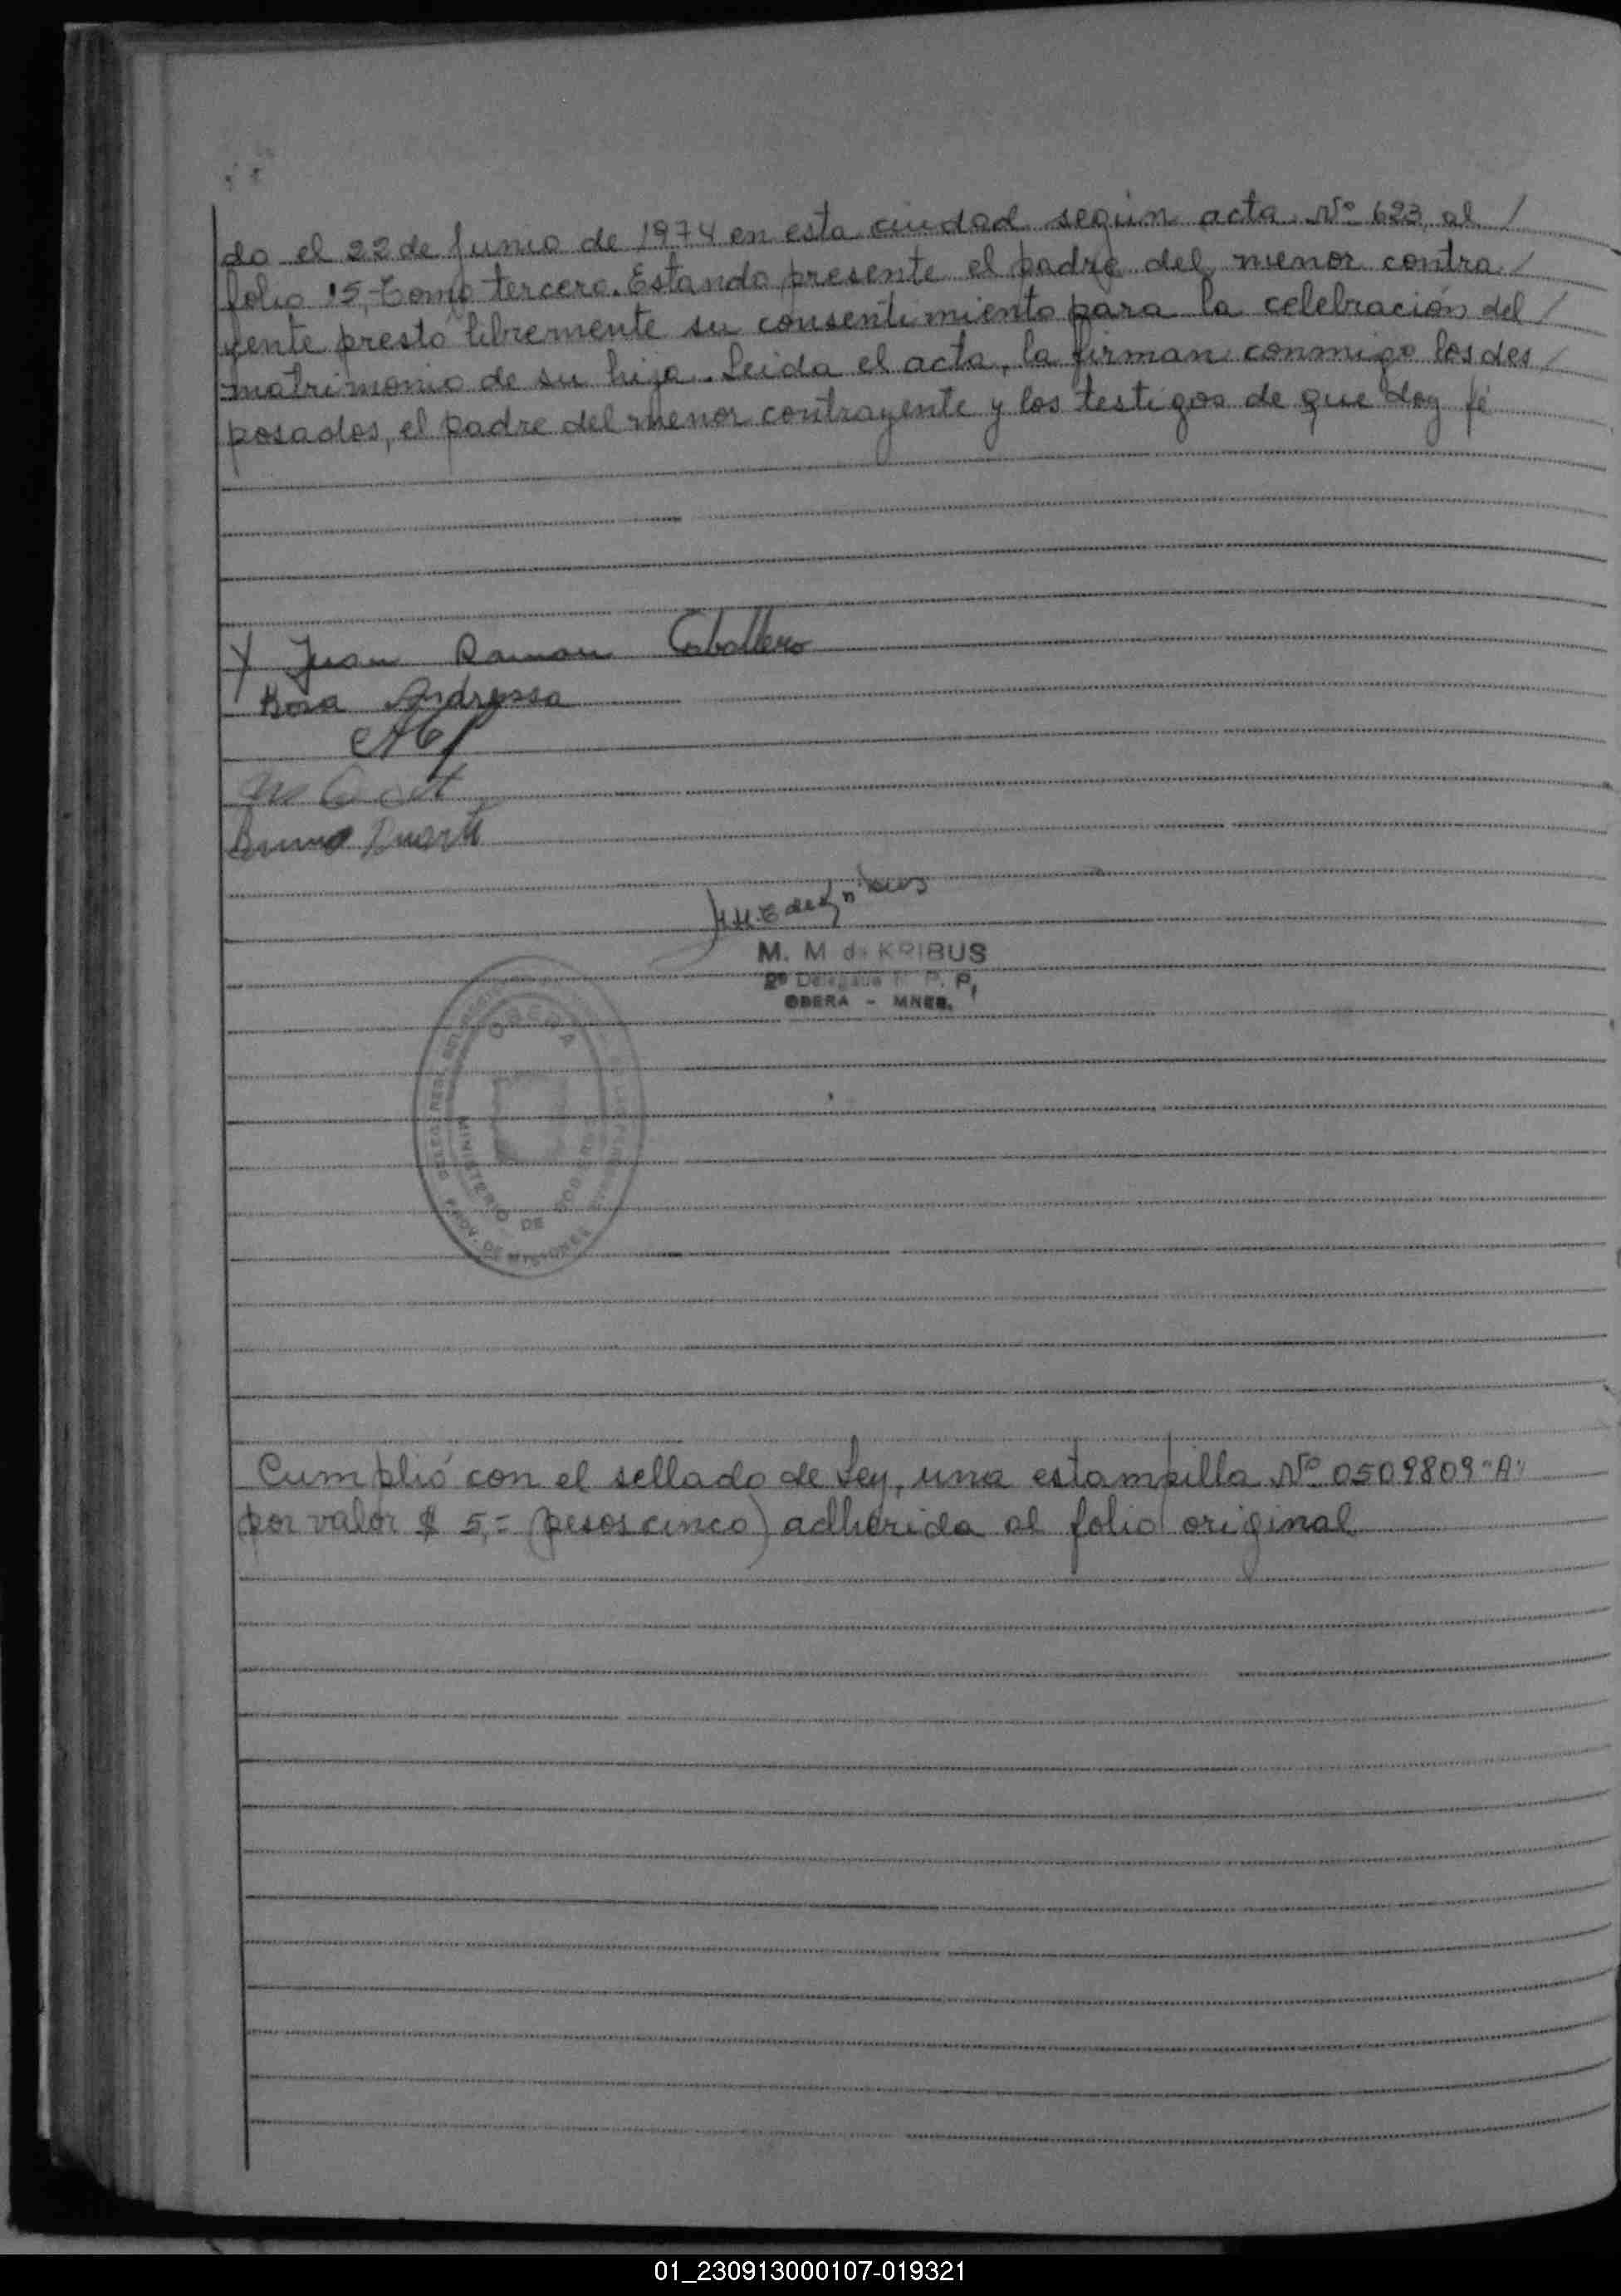 do el 22 de Junio de 1974 en esta ciudad según acta Nº 623, al /
folio 15, Tomo tercero. Estando presente el padre del menor contra /
yente prestó libremente su consentimiento para la celebración del /
matrimonio de su hijo. Leida el acta, la firman conmigo los des /
posados, el padre del menor contrayente y los testigos de que doy fé
Juan Ramon Caballero
Rosa Andressa
Bruno Duarte
M. M de KRIBUS
2º Delegada R. P. P,
OBERA - MNES.
OBERA
MINISTERIO DE GOBIERNO
PROV. DE MISIONES
Cumplió con el sellado de Ley, una estampilla Nº 0509809 "A"
por valor $ 5,= (pesos cinco) adherida al folio original
01_230913000107-019321